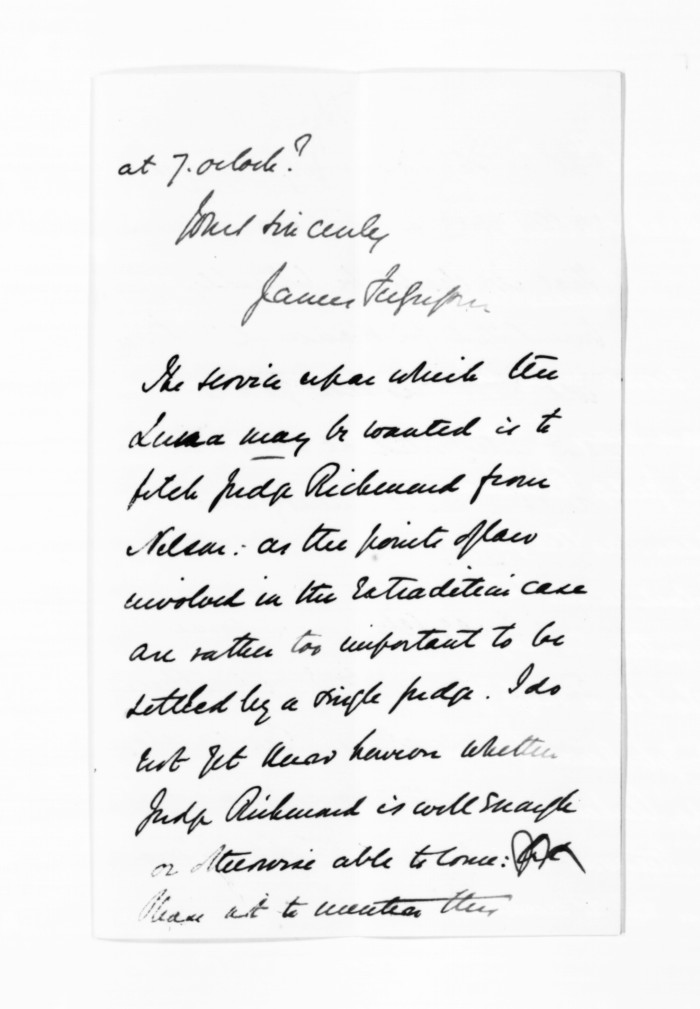 at 7. o'clock?
Yours sincerely
James Fergusson
The service upon which the
Luna may be wanted is to
fetch Judge Richmond from
Nelson: as the points of law
involved in the Extradition case
are rather too important to be
settled by a single judge. I do
not yet know however whether
Judge Richmond is well enough
or otherwise able to come:
Please not to mention this